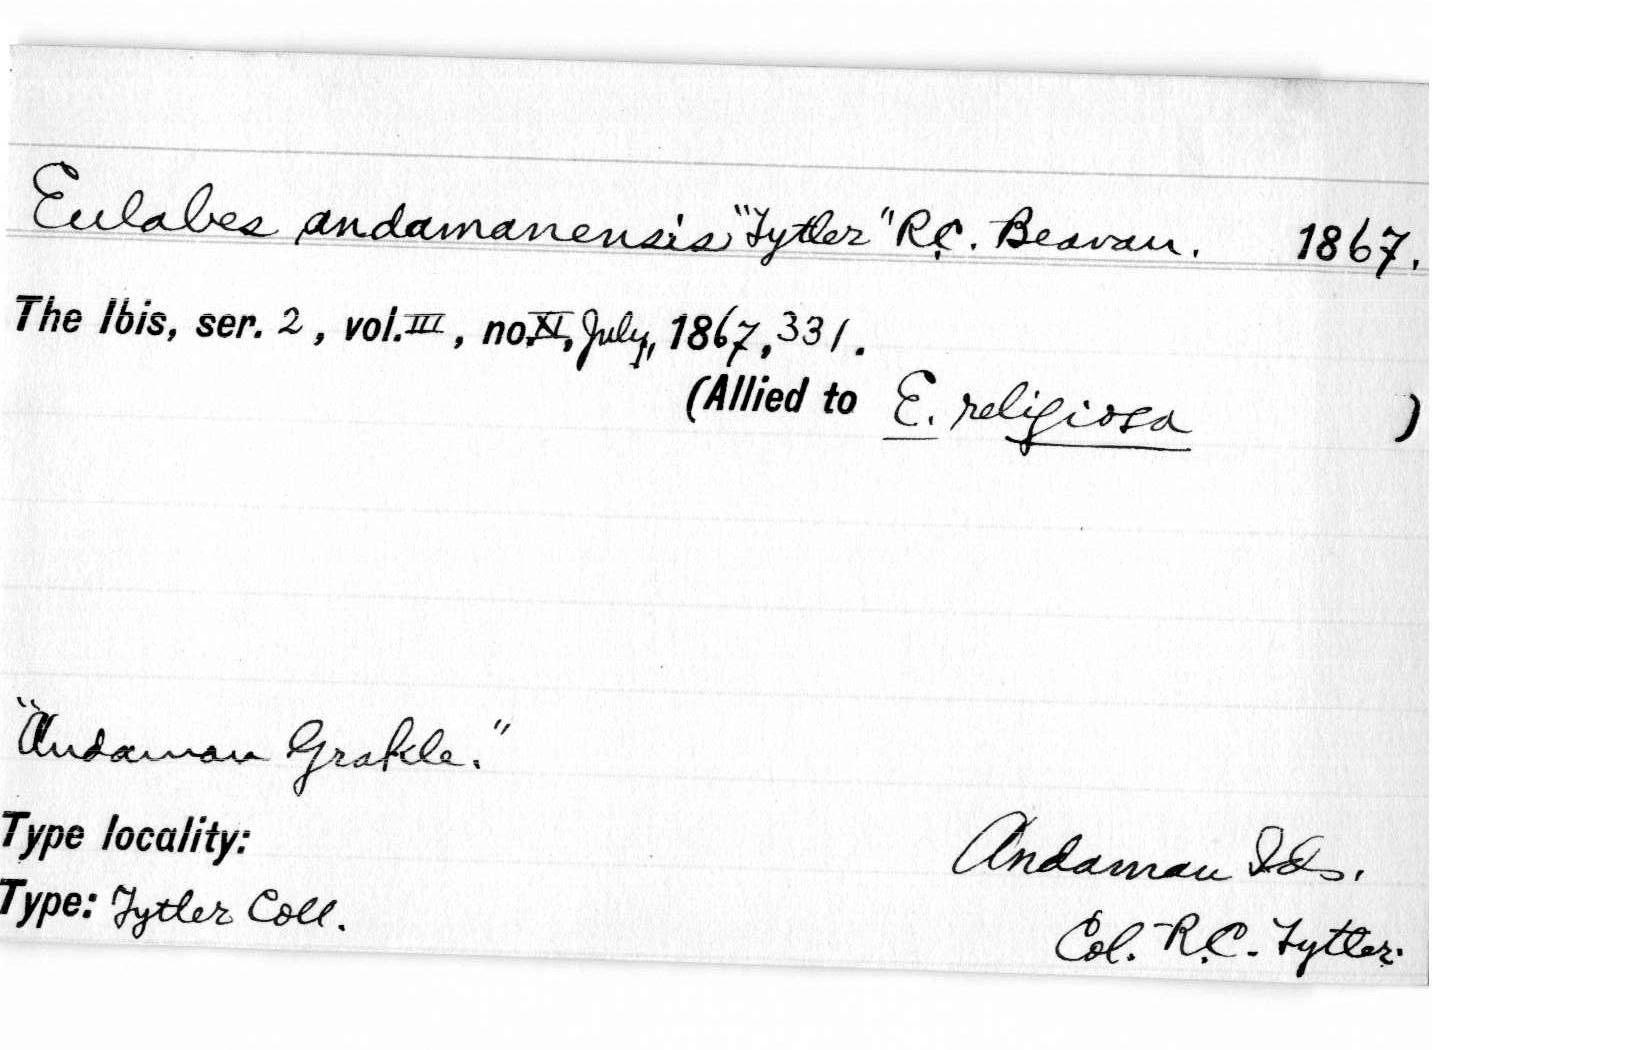 Eulabes andamanensis "Tytler" R.C. Beavan. 1867.
The Ibis, ser. 2, vol. III, no. XI, July, 1867, 331.
(Allied to E. religiosa )
"Andaman Grakle."
Type locality: Andaman Ids.
Type: Tytler Coll. Col. R.C. Tytler.